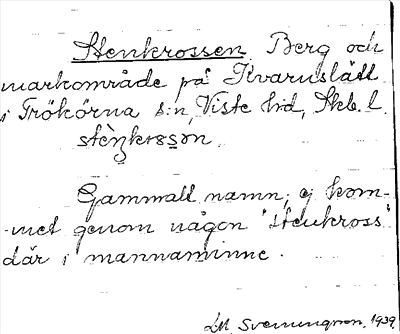 Stenkrossen. Berg och
markområde på Kvarnslätt
i Trökörna s:n, Viste hd, Skb. l.
Gammalt namn; ej kom-
-met genom någon "stenkross"
där i mannaminne.
LM. Svenungson. 1939.